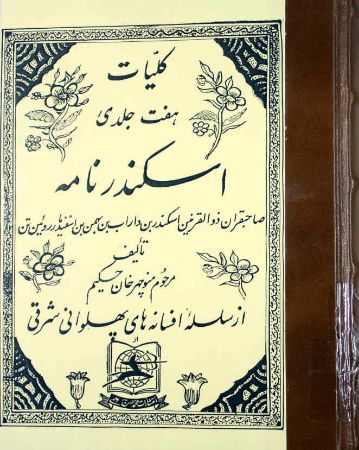 کلیّات
هفت جلدی
اسکندرنامه
صاحبقران ذوالقرنین اسکندر بن داراب بن بهمن بن اسفندیار روئین تن
تألیف
مرحوم منوچهرخان حکیم
از سلسله افسانه های پهلوانی شرقی